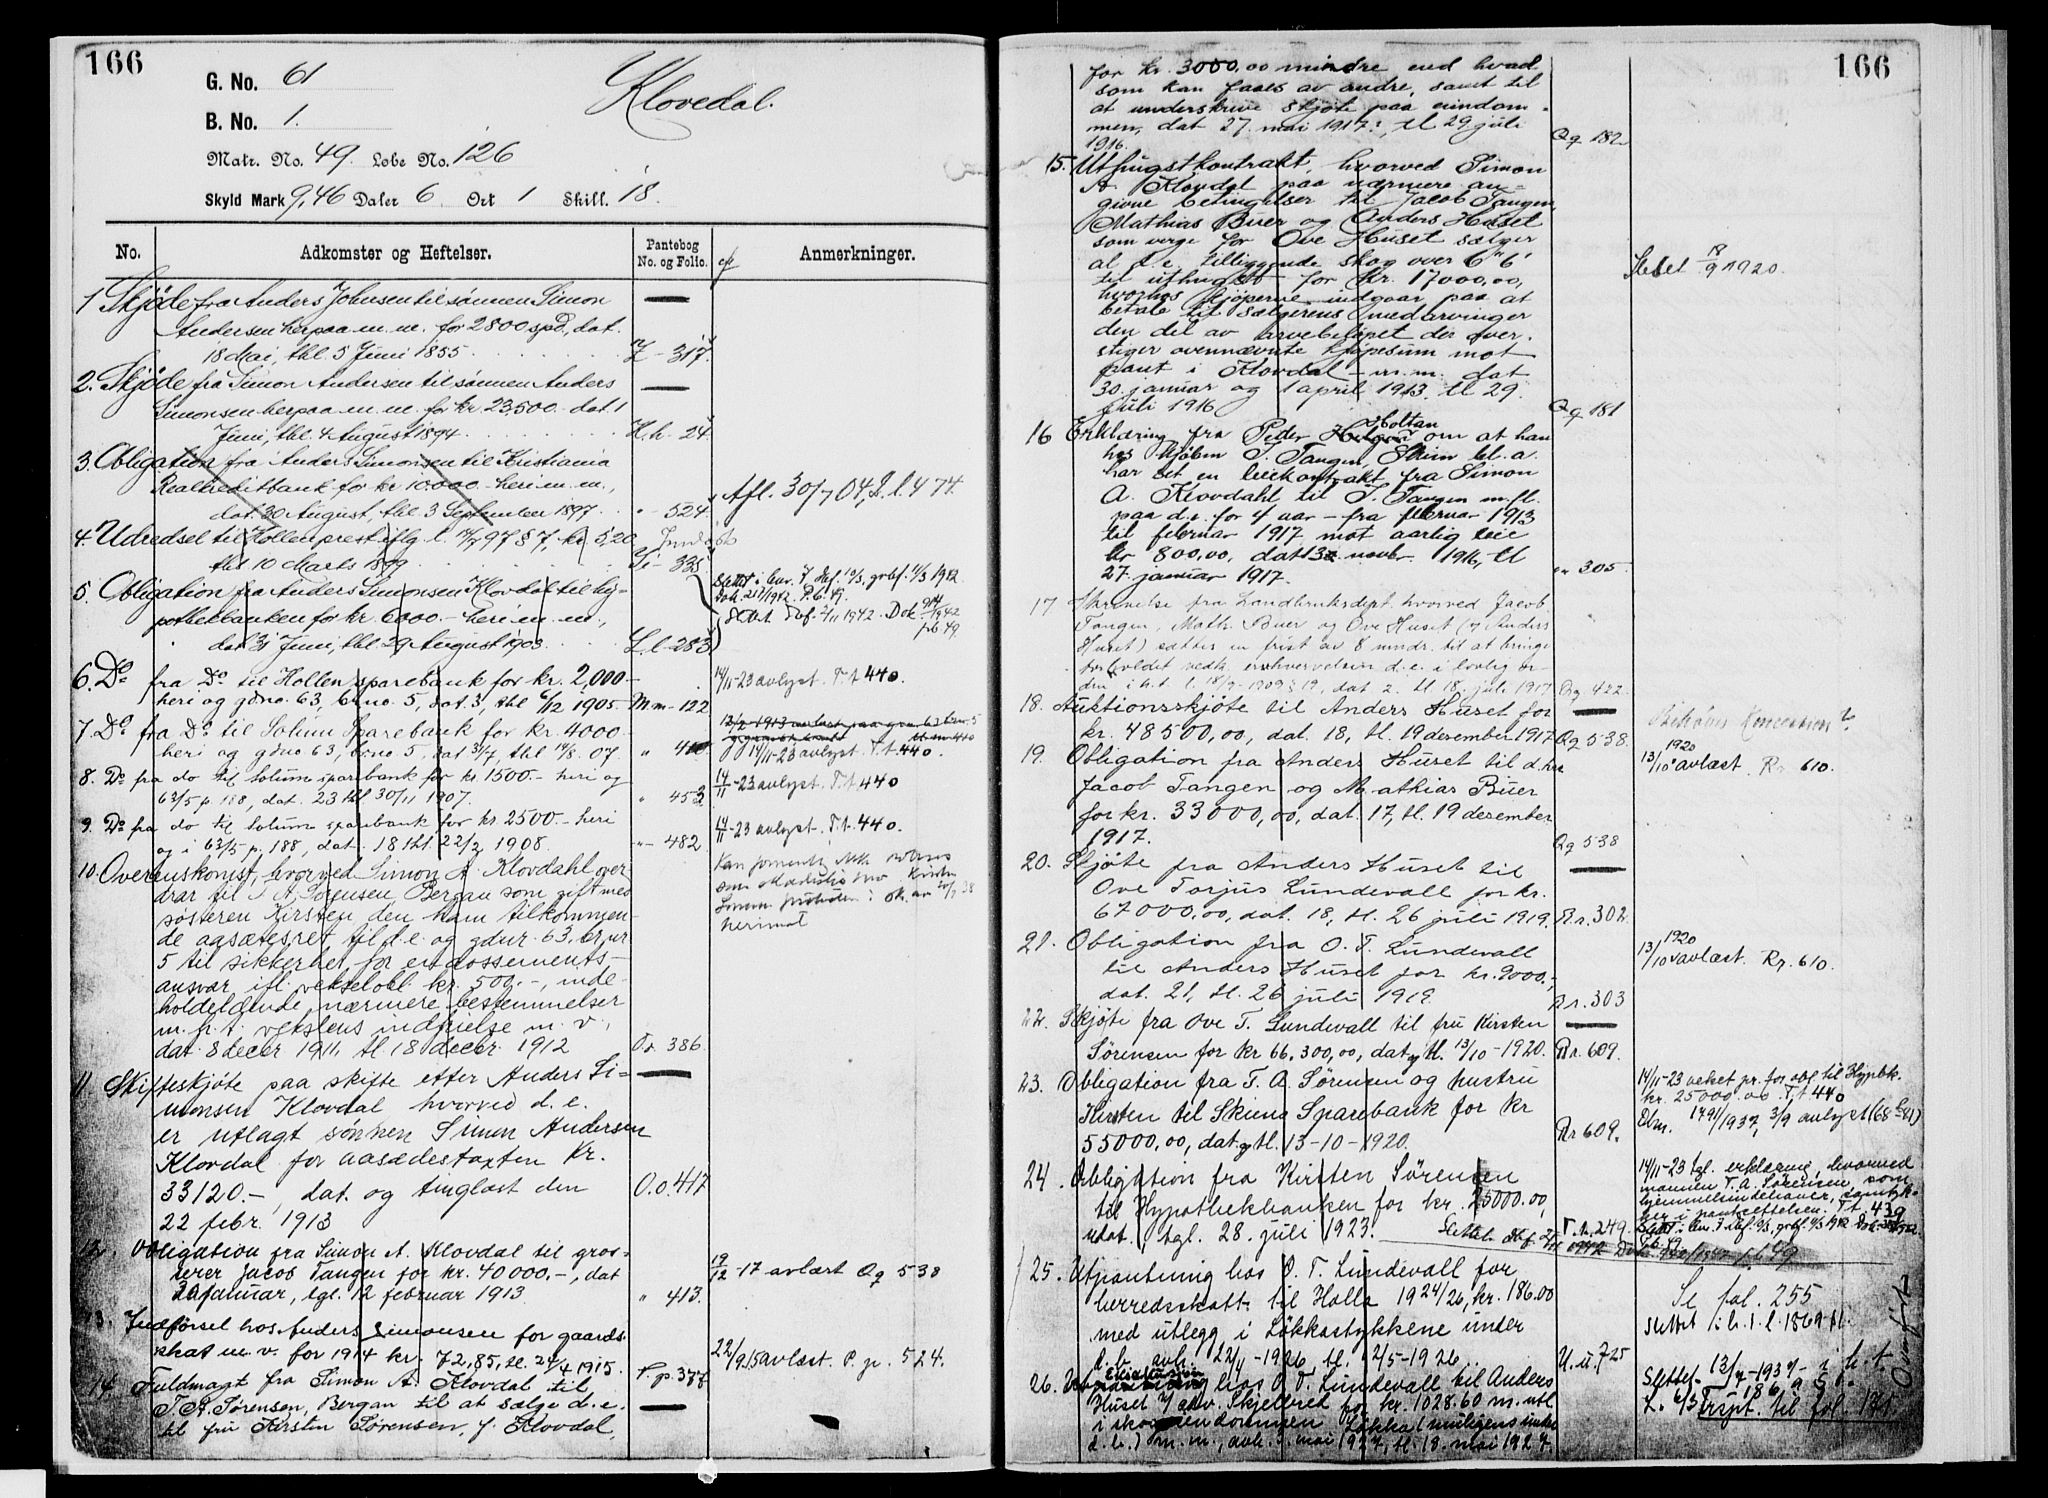 166
G. No. 61
B. No. 1.
Klovedal.
Matr. No. 49. Løbe No. 126
Skyld Mark 9,46 Daler 6 Ort 1 Skill. 18.
No. Adkomster og Heftelser. Pantebog No. og Folio. Anmerkninger.
1 Skjøde fra Anders Johnsen til sønnen Simon
Andersen herpaa m. m. for 2800 spd, dat.
18 Mai, thl 5 Juni 1855 317
2. Skjøde fra Simon Andersen til sønnen Anders
Simonsen herpaa m. m. for kr 23,500 - dat 1
Juni, thl. 4 August 1894. H.h - 24
3. Obligation fra Anders Simonsen til Kristiania
Realkreditbank for kr 10.000 - heri m. m.,
dat. 30 August, thl 3 September 1897. " - 524
Afl. 30/7 04, L.l. 474.
4. Udredsel til Hollen prest iflg l. 14/7 97 § 7, kr 5,20
thl 10 Marts 1899 I i - 335
5 Obligation fra Anders Simonsen Klovdal til hy-
pothekbanken for kr. 6000. - heri m. m.,
dat 3 Juni, thl. 29 August 1903. L.l - 283
6. Do fra Do til Hollen sparebank for kr. 2,000 -
heri og gdno. 63, brno. 5, dat. 3, thl 6/12 1905. M.m - 122
14/11-23 avlyst. T.t 440.
7. Do fra Do til Solum Sparebank for kr. 4000 -
heri og gdno 63, brno. 5, dat 31/7, thl 14/8. 07. " 410
14/11-23 avlyst. T.t. 440.
8. Do fra do til Solum sparebank for kr. 1500.- heri og
63/5 p. 188, dat. 23 thl 30/11 1907. " 453
14/11-23 avlyst. T.t 440
9. Do fra do til Solum sparebank for kr 2500.- heri
og i 63/5 p. 188, dat. 18 thl. 22/2 1908. "- 482
14/11-23 avlyst. T.t. 440.
10. Overenskomst, hvorved Simon A. Klovdahl over-
drar til T. A. Sørensen Bergan som gift med
søsteren Kirsten den ham tilkommen-
de aasætesret til d.e. og gdnr. 63, br.nr.
5 til sikkerhet for endossements-
ansvar ifl. vekselobl kr. 500.-, inde-
holdelende nærmere bestemmelser
m. h. t. vekslens indfrielse m. v.,
dat. 8 decer 1911, tl 18 decer. 1912 O.o. 386.
11. Skifteskjøte paa skifte etter Anders Si-
monsen Klovdal hvorved d. e.
er utlagt sønnen Simon Andersen
Klovdal for aasædestaxten Kr.
33120.-, dat. og tinglæst den
22 febr. 1913 O.o. 417
12. Obligation fra Simon A. Klovdal til gros-
serer Jacob Tangen for kr. 40000.-, dat
januar, tgl. 12 februar 1913. " 413.
19/12-17 avlæst Qq 538
13. Indførsel hos Anders Simonsen for gaards-
skat m. v. for 1914 kr. 72,85, tl. 24/4 1915. P.p. 377
22/9.15 avlæst. P. p. 524.
14 Fuldmagt fra Simon A. Klovdal til
T. A. Sørensen, Bergan til at sælge d. e.
til fru Kirsten Sørensen, f. Klovdal,
166
for kr. 3000,00 mindre end hvad
som kan faaes av andre, samt til
at underskrive skjøte paa eindom-
men, dat 27. mai 1917., tl 29 juli
1916. Qq 182
15. Uthugstkontrakt, hvorved Simon
A. Klovdal paa nærmere an-
givne betingelser til Jacob Tangen,
Mathias Buer og Anders Huset
som verge for Ove Huset sælger
al d. e. tilliggende skog over 6" 6'
til uthugst for Kr. 17000,00,
hvorhos kjøperne indgaar paa at
betale til sælgerens medarvinger
den del av arvebeløpet der over-
stiger ovennævnte kjøpesum mot
pant i Klovdal m. m. dat
30. januar og 1 april 1913. tl 29.
juli 1916 Qq 181
Slettet 18/9 1920.
16 Erklæring fra Peder Holtan om at han
hos kjøbm J. Tangen, Skien bl. a.
har set en leiekontrakt fra Simon
A. Klovdahl til J. Tangen m. fl.
paa d.e. for 4 aar - fra februar 1913
til februar 1917 mot aarlig leie
kr 800,00, dat 13 novbr. 1916, tl
27. januar 1917. " 305.
17. Skrivelse fra Landbruksdept. hvorved Jacob
Tangen, Math. Buer og Ove Huset (v/ Anders
Huset) sættes en frist av 8 mndr. til at bringe
forholdet vedk. erhvervelsen d. e. i lovlig or-
den i h.t. l. 18/9-1909 § 19, dat. 2. tl 18. juli 1917 Qq 422.
18. Auktionsskjøte til Anders Huset for
kr. 48500,00, dat. 18, tl. 19 desember 1917 Qq 538.
19. Obligation fra Anders Huset til d.hrr
Jacob Tangen og Mathias Buer
for kr. 33000,00, dat. 17, tl. 19 desember
1917. Qq 538
13/10 1920 avlæst. Rr 610.
20. Skjøte fra Anders Huset til
Ove Torjus Lundevall for kr.
67000,00, dat. 18, tl. 26 juli 1919. R.r. 302.
21. Obligation fra O. T. Lundevall
til Anders Huset for kr. 9000,-,
dat. 21, tl. 26 juli 1919. R.r. 303
13/10 1920 avlæst. Rr. 610.
22. Skjøte fra Ove T. Lundevall til fru Kirsten
Sørensen for kr 66.300,00, dat og tl. 13/10-1920. Rr. 609.
23. Obligation fra T. A. Sørensen og hustru
Kirsten til Skiens Sparebank for kr
55000,00, dat og tl. 13-10-1920. Rr 609.
14/11-23 veket pr. for obl. til Hypbk.
kr. 25000.00 T.t 440
24. Obligation fra Kirsten Sørensen
til Hypothekbanken for kr. 25000.00,
udat., tgl. 28. juli 1923. T.t. 249.
14/11-23 tgl. erklæring, hvorved
mannen T. A. Sørensen, som
hjemmelsindehaver, samtyk-
ker i pantsettelsen. T.t. 439
25. Utpantning hos O. T. Lundevall for
herredsskatt til Holla 1924/26, kr. 186.00
med utlegg i Løkkastykkene under
d. b. avh. 22/4-1926, tl. 12/5-1926. U.u. 725
Se fol. 255
26. Eksekution hos O. T. Lundevall til Anders
Huset v/ adv. Skjelbred for kr. 1028.60 m. utl.
i skogseiendommen Løkka (muligens under
d. b.) m. m., avh. 5. mai 1927, tl. 18. mai 1927.
Slettet 13/7-1937 i h. t.
Trspt. til fol. 181.